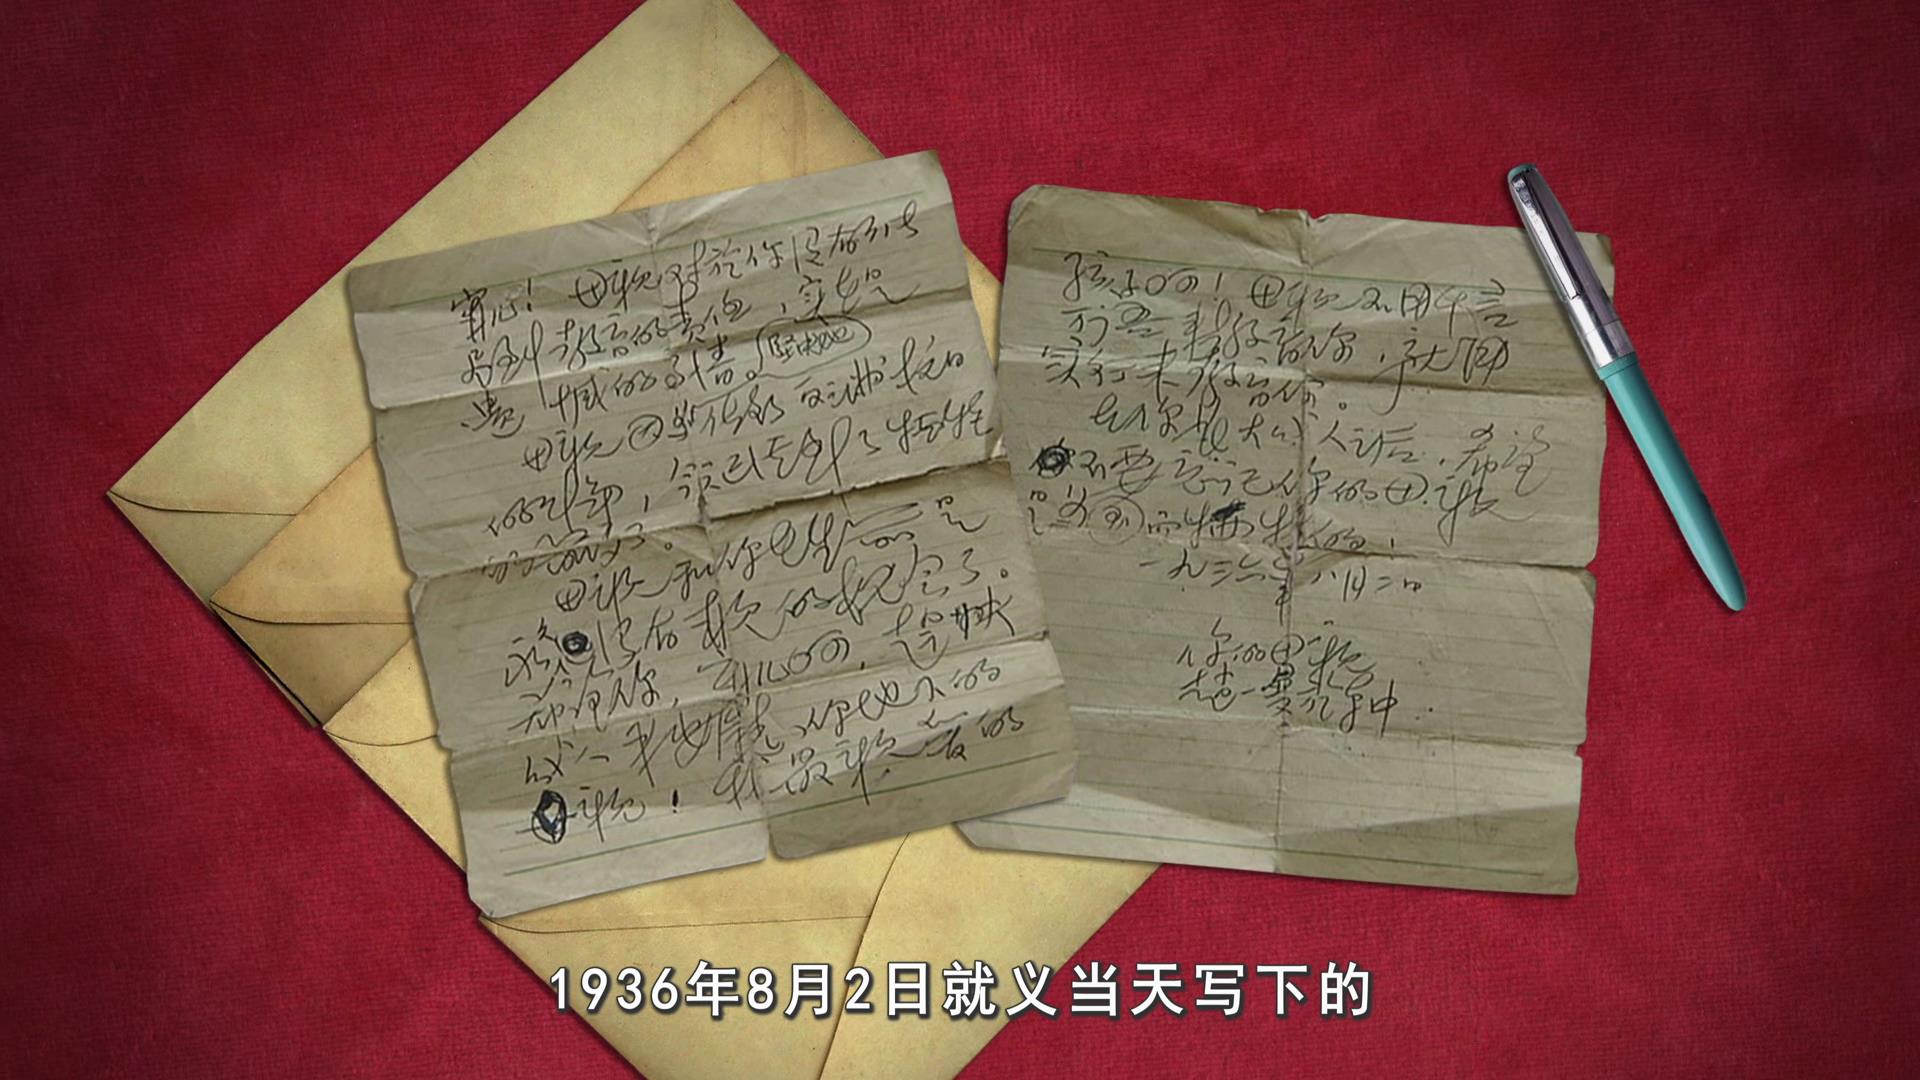 寧儿！母親对於你没有能尽
到教育的責任，实在是
遗憾的事情。坚决地
母親因为做了反满抗日
的斗争，今天已经到了牺牲
的前夕了。
母親和你在生前是
永久没有再見的机会了。
希望你，寧儿啊！赶快
成人，来安慰你地下的
母親！我最親爱的
孩子啊！母親不用千言
万語来教育你，就用
实行来教育你。
在你長大成人之后，希望
不要忘记你的母親
是为国而犧牲的！
一九三六年八月二日
你的母親
趙一曼于车中
1936年8月2日就义当天写下的